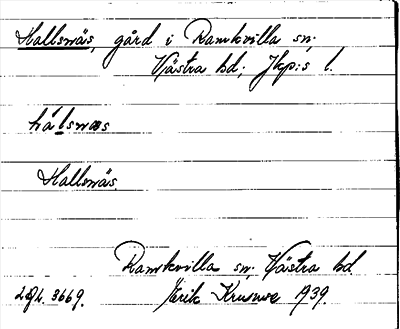 Hallsnäs, gård i Ramkvilla sn;
Västra hd; Jkp:s l.
hálsnæs
Hallsnäs.
Ramkvilla sn, Västra hd.
3669. Erik 1939.